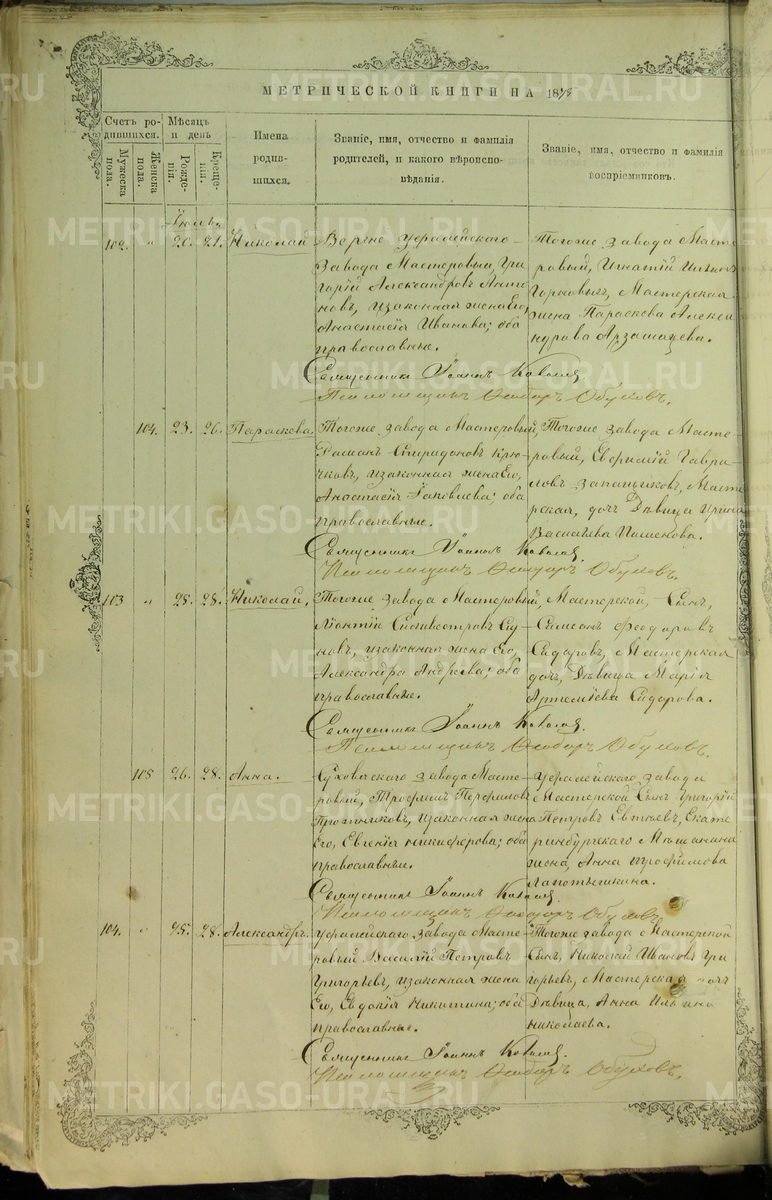 МЕТРИЧЕСКОЙ КНИГИ НА 187
Счетъ ро-
дившихся.
Мужеска
пола.
Женска
пола.
Мѣсяцъ
и день
Рожде-
нія.
Креще-
нія.
Имена
родив-
шихся.
Званіе, имя, отчество и фамилія
родителей, и какого вѣроиспо-
вѣданія.
Званіе, имя, отчество и фамилія
воспріемниковъ.
102. " 20. 21. Николай
Завода Мастеровый, Гри-
горій Александровъ
новъ, и законная жена Его,
Анастасія Иванова; оба
православные.
Тогоже завода Масте-
ровый, Игнатій
Мастерская
жена Параскова Алекса-
ндрова Арзамацева.
Священникъ Іоаннъ
Псаломщикъ Ѳеодоръ Обуховъ.
104. 23. 26. Параскева.
Тогоже завода Мастеровый,
Романъ Спиридоновъ Крю-
чковъ, и законная жена Его,
Анастасія Іаковлева; оба
православные.
Тогоже завода Масте-
ровый, Гаври-
ловъ Масте-
рская, дочь Дѣвица Ирина
Васильева Пименова.
Священникъ Іоаннъ
Псаломщикъ Ѳеодоръ Обуховъ.
103 " 25. 28. Николай,
Тогоже завода Мастеровый,
Леонтій Силивестровъ Су-
новъ, и законная жена Его,
Александра Андреева; оба
православные.
Мастерской, Сынъ,
Симеонъ Феодоровъ
Сидоровъ, Мастерская
дочь, Дѣвица Марія
Артеміева Сидорова.
Священникъ Іоаннъ
Псаломщикъ Ѳеодоръ Обуховъ.
105 26. 28. Анна.
завода Масте-
ровый, Трофимъ Перфиловъ
и законная жена
Его, Евгенія Никифорова; оба
православные.
Уфалейскаго завода
Мастерской Сынъ Григорій
Петровъ Евтѣевъ, Екате-
ринбургскаго Мѣщанина
жена, Анна Трофимова
Лапотышкина.
Священникъ Іоаннъ
Псаломщикъ Ѳеодоръ Обуховъ.
104. " 25. 28. Александръ.
Уфалейскаго завода Масте-
ровый Василій Петровъ
Григорьевъ, и законная жена
Его, Евдокія Никитина; оба
православные.
Тогоже завода Мастерской
Сынъ, Николай Ивановъ Гри-
горьевъ, Мастерская дочь
Дѣвица, Анна Ильина
Николаева.
Священникъ Іоаннъ
Псаломщикъ Ѳеодоръ Обуховъ.
METRIKI.GASO-URAL.RU